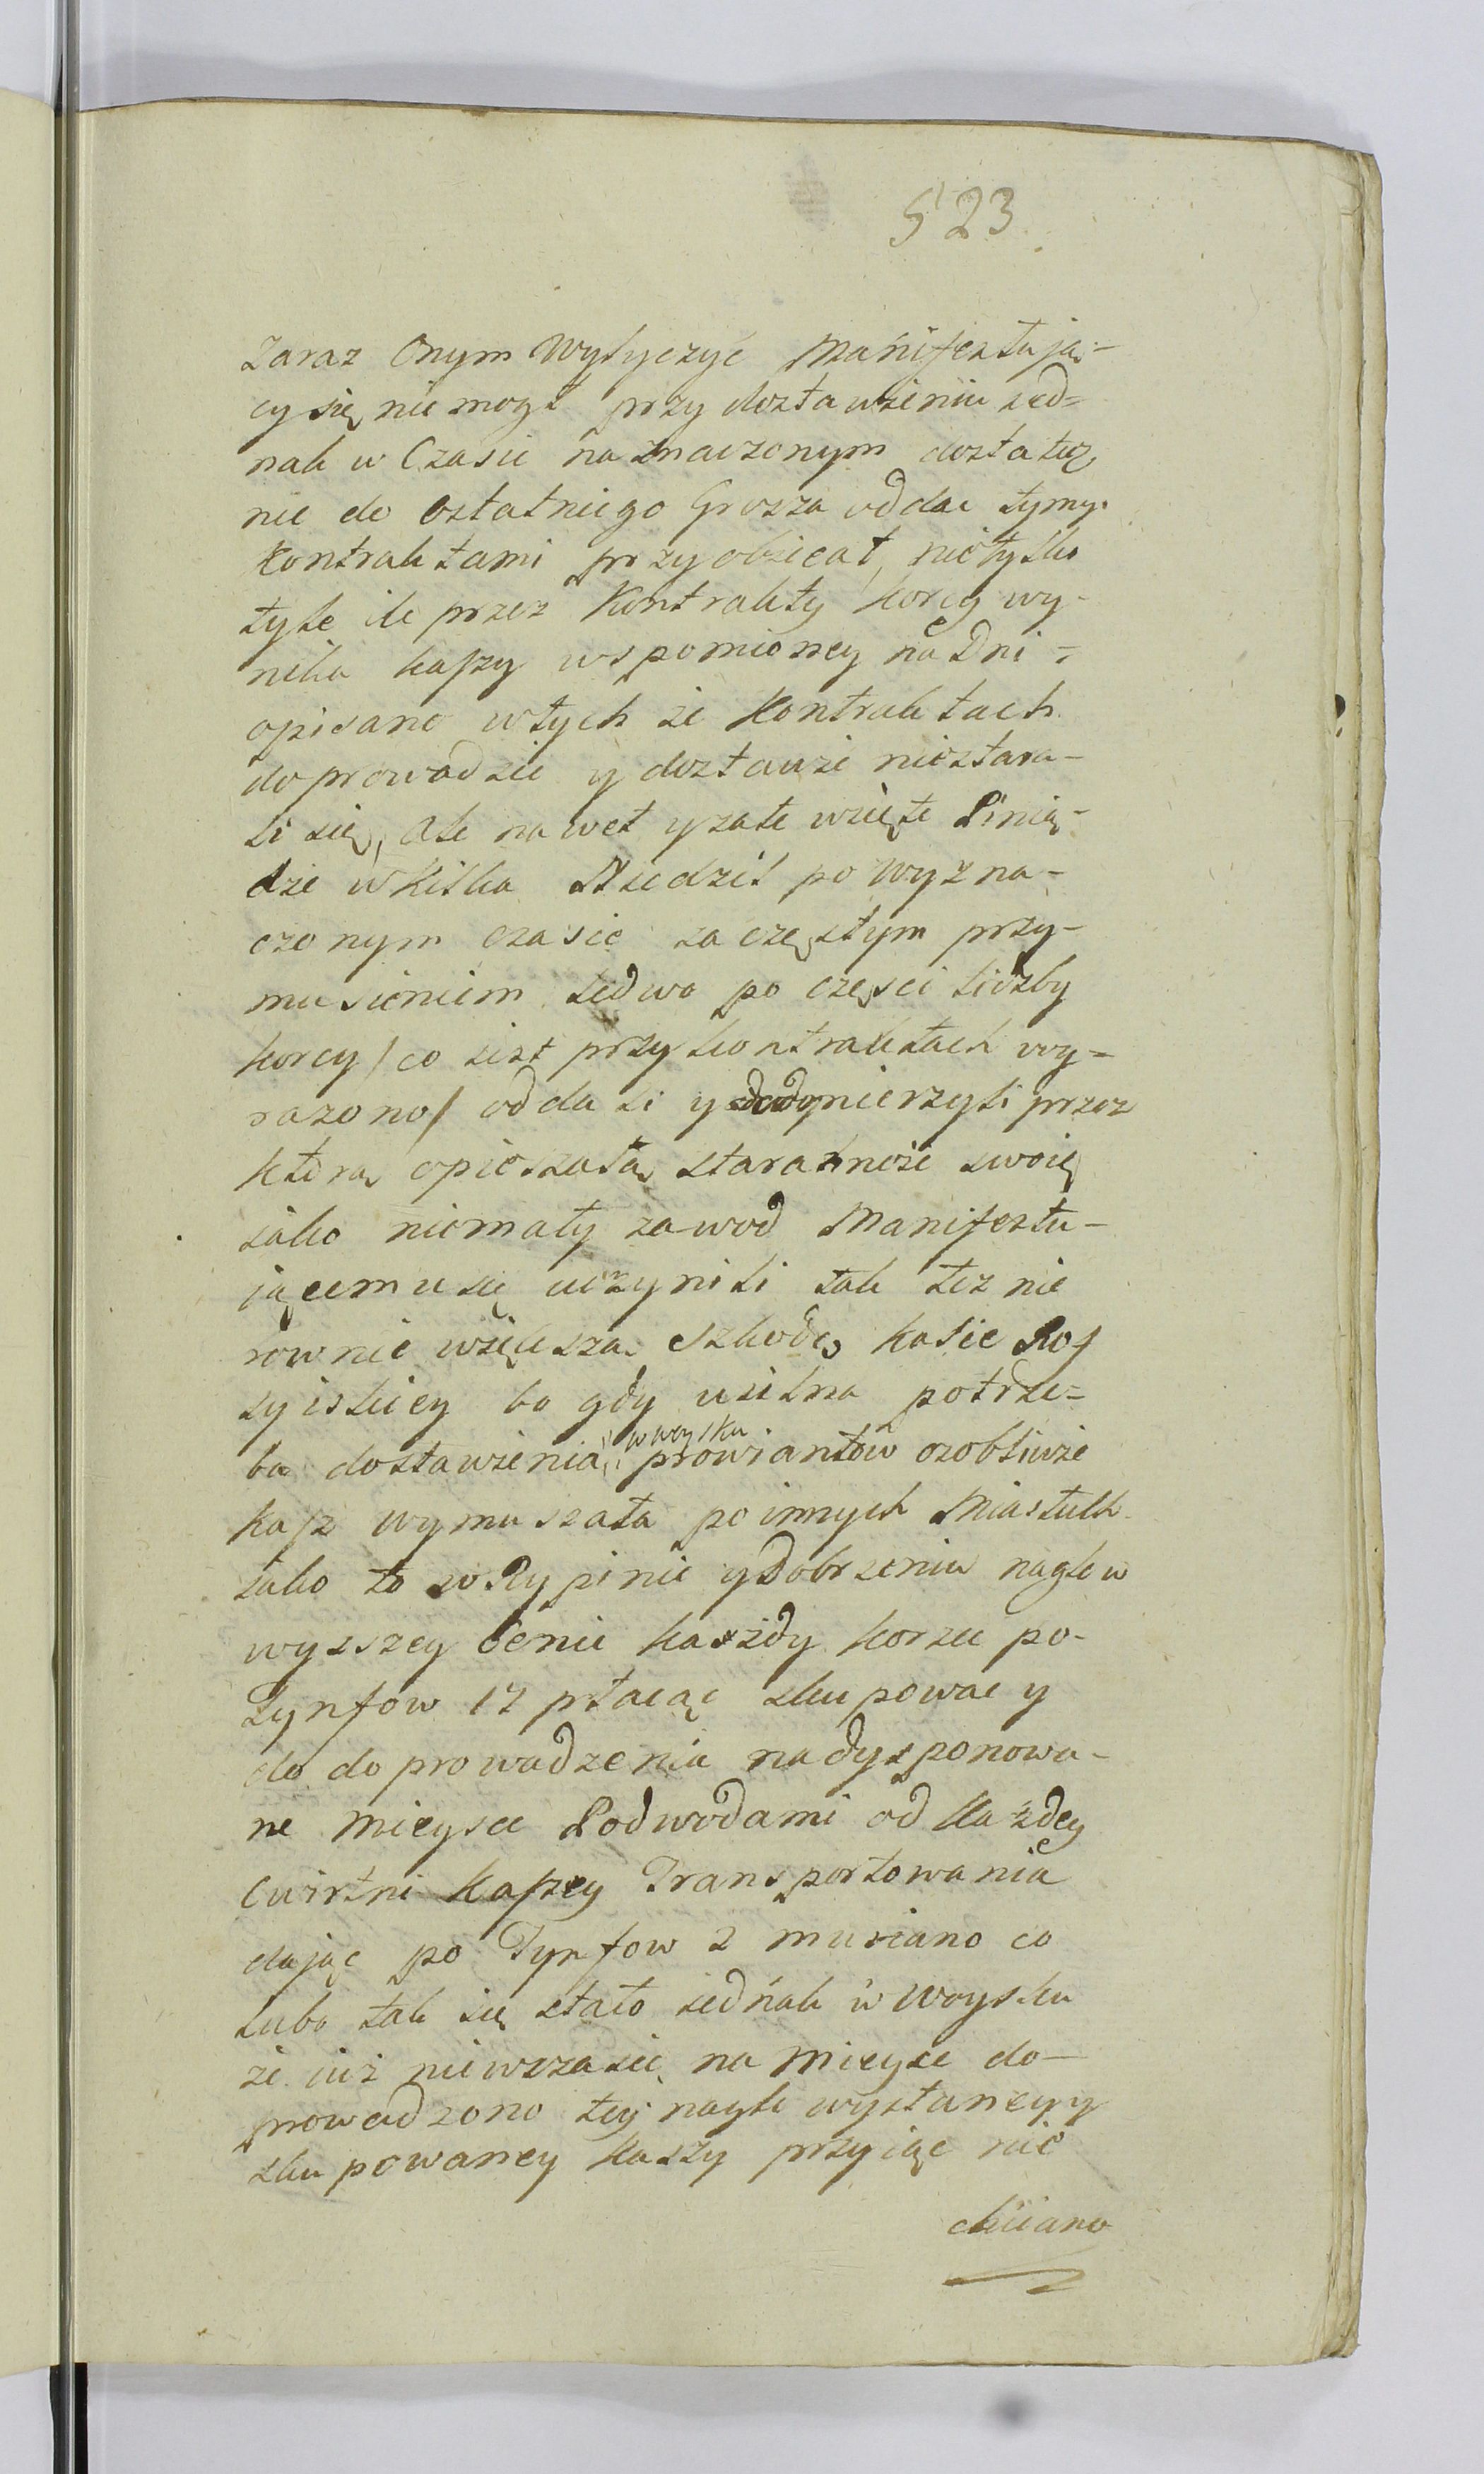 523
Zaraz Onym Wyłyczyć Manifestują-
cy się nie mogł przy dostawieniu ied=
nak w Czasie naznaczonym dostatecz
nie do ostatniego Grosza oddać tymy
Kontraktami przyobiecał, nietylko
tyle ile przez Kontrakty korcy wy-
nika kaszy wspomioney na Dni =
opisane w tych że Kontraktach
doprowadzić y dostawić niestara-
li się, Ale nawet y zate wzięte Pienią-
dze w kilka Niedziel po wyzna-
czonym czasie za częstym przy-
musieniem ledwo po części liczby
korcy / co iest przy kontraktach wy=
razono / oddali y domierzyli przez
którą opieszałą staranność swoię
iako niemały zawod Manifestu-
iącemu się uczynili tak też nie
rownie większą szkodę kasie Ros
syiskiey bo gdy usilna potrze=
ba dostawienia w woysku prowiantow osobliwie
kasz wymuszała po innych Miastach
iako to w Rypinie y Dobrzeniu nagle w
wyższey Cenie każdy korzec po-
Tynfow 17 płacąc skupować y
do doprowadzenia na dysponowa-
ne mieysce Podwodami od każdey
Cwirtni kaszy Transportowania
dając po Tynfow 2 musiano co
lubo tak się stało iednak w woysku
że iuż niewczasie na mieysce do-
prowadzono tey nagle wystaney y
skupowaney kaszy przyiąć nie
chciano